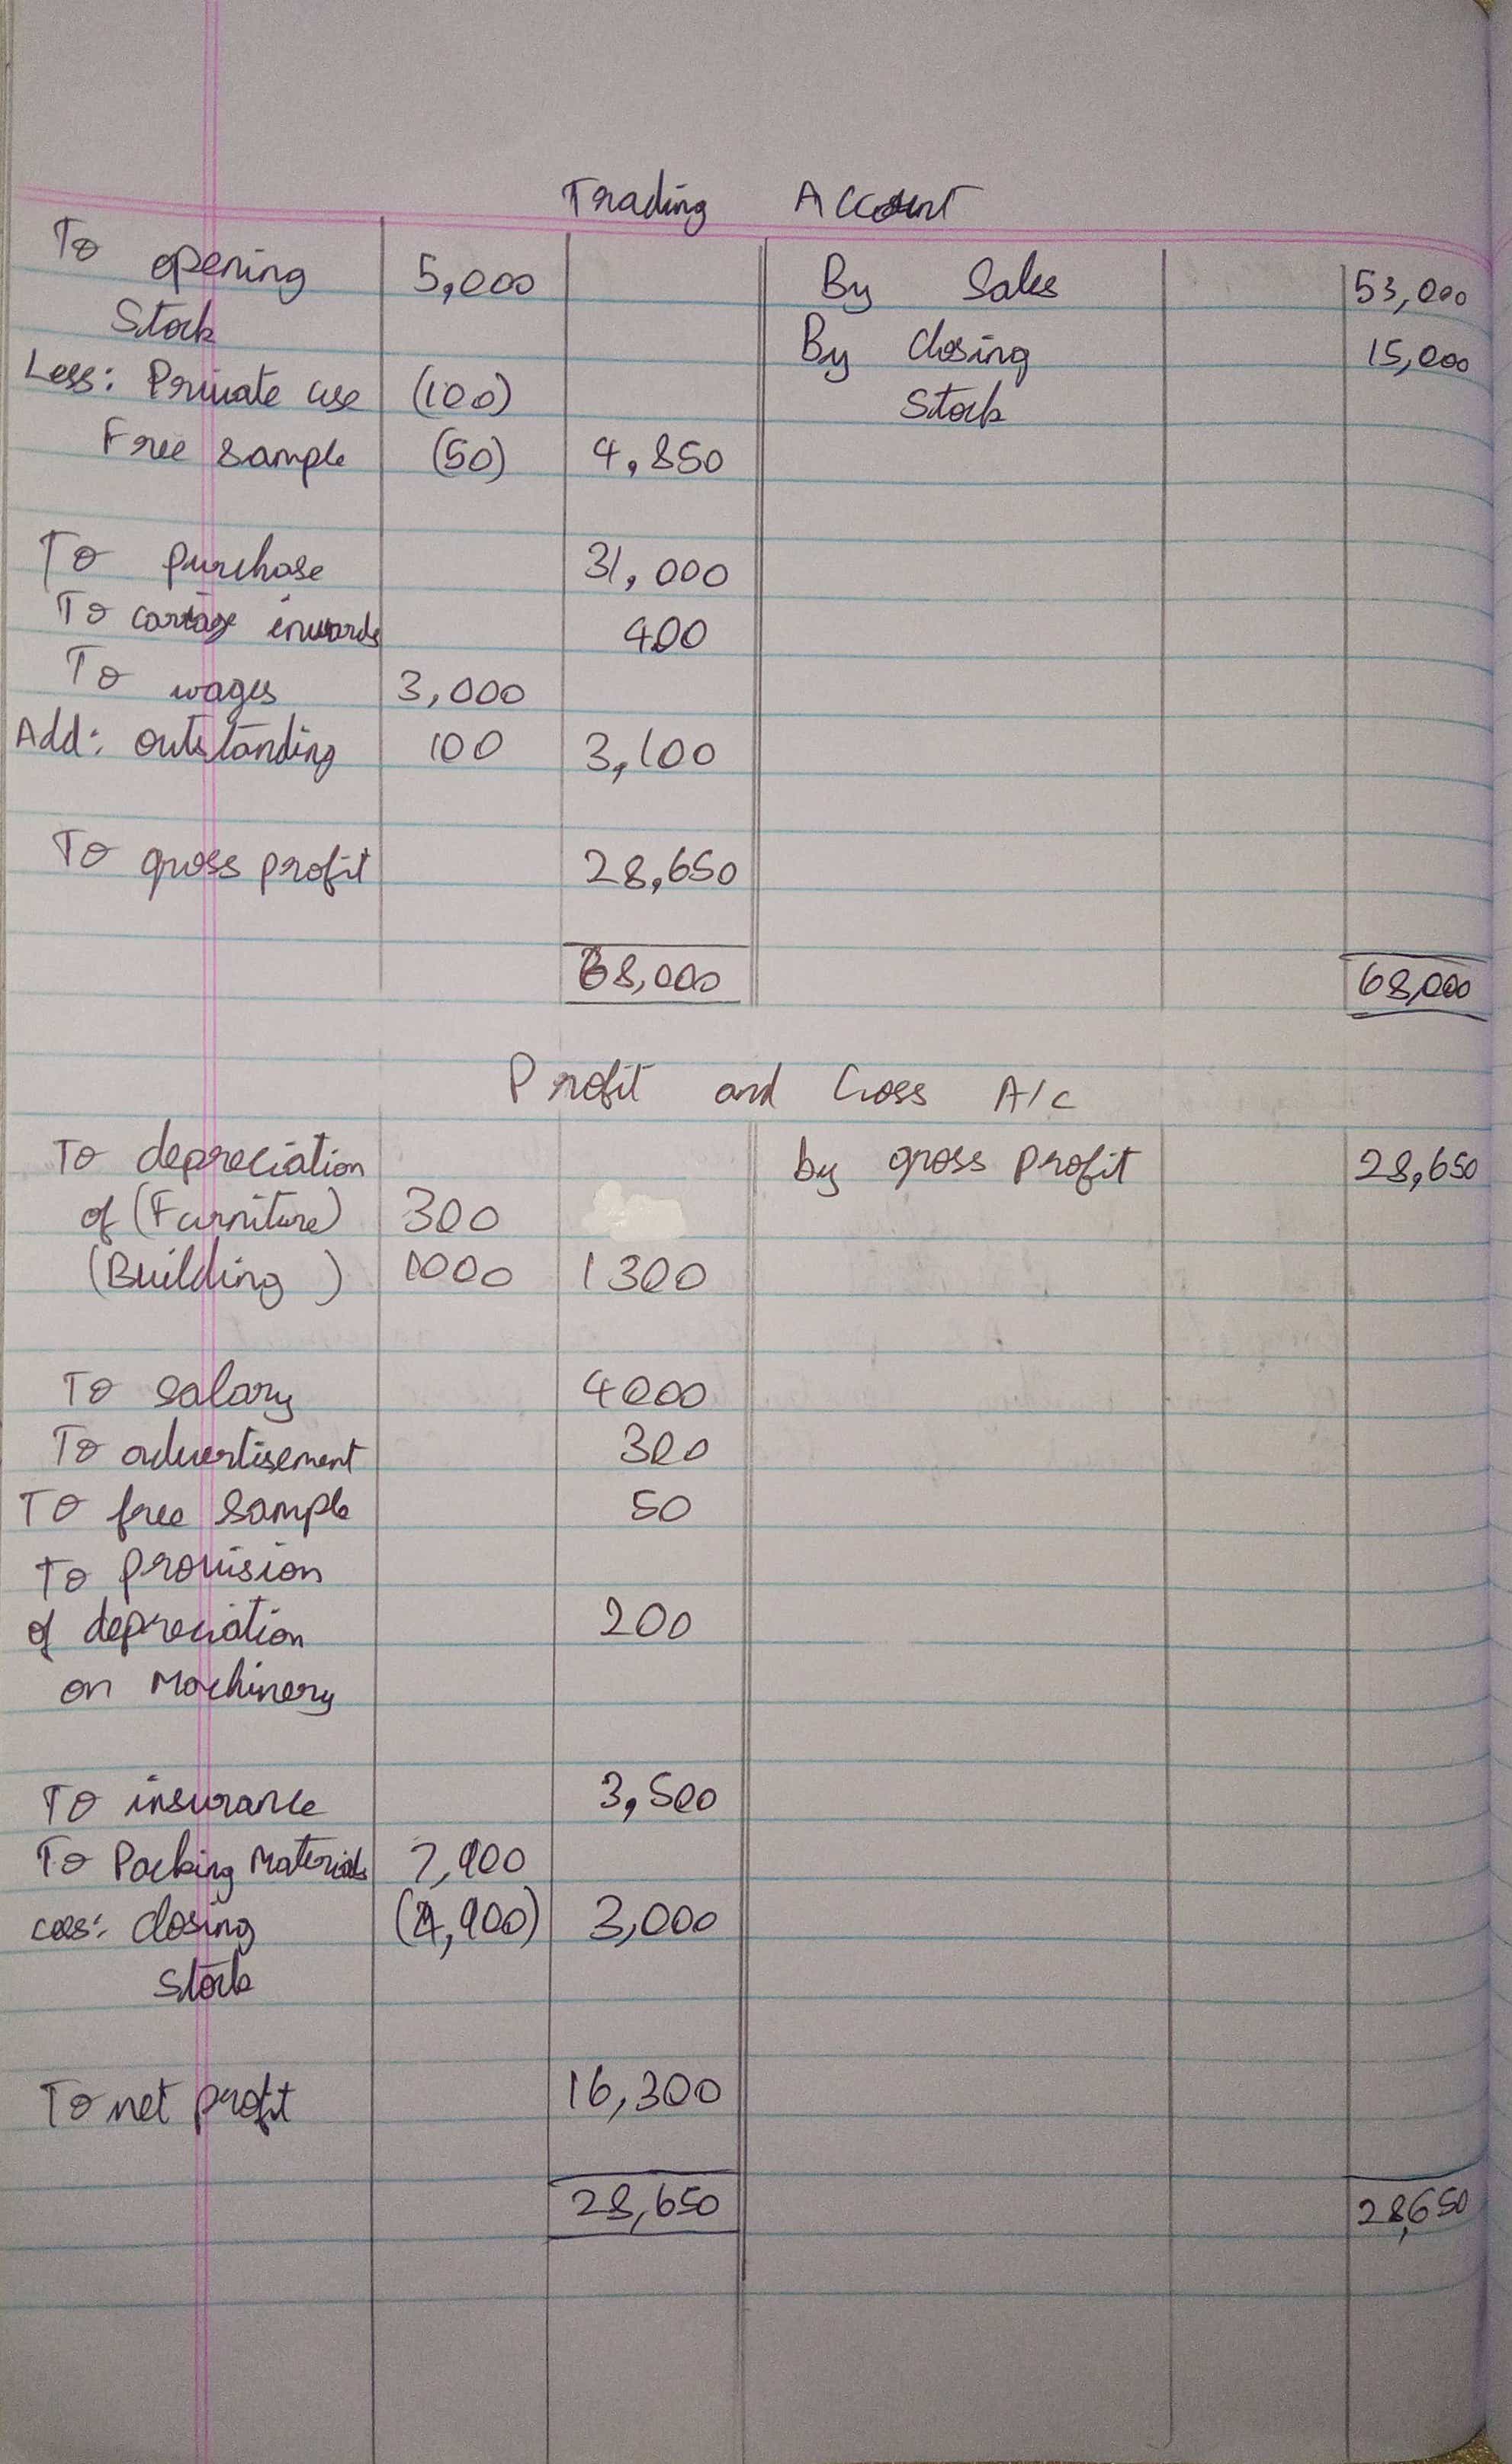 Trading Account
To opening 5,000 By Sales 53,000
Stock By Closing 15,000
Less: Private use (100) Stock
Free sample (50) 4,850
To purchase 31,000
To cartage inwards 400
To wages 3,000
Add: outstanding 100 3,100
To gross profit 28,650
68,000 68,000
Profit and Loss A/c
To depreciation by gross profit 28,650
of (Furniture) 300
(Building) 1000 1300
To salary 4000
To advertisement 300
To free sample 50
To provision
of depreciation 200
on Machinery
To insurance 3,500
To Packing Materials 7,900
Less: closing (4,900) 3,000
stock
To net profit 16,300
28,650 28,650